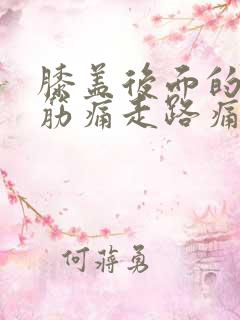 膝盖後面的
筋痛走路痛
何蒋勇